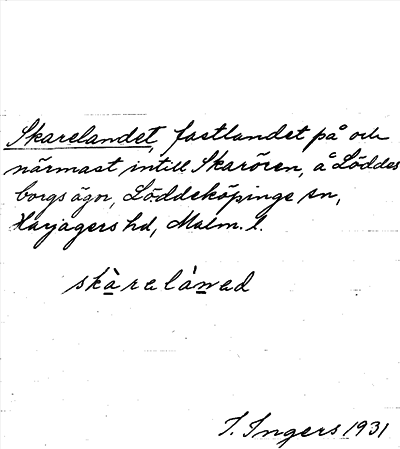 Skarelandet, fastlandet på och
närmast intill Skarören, å Löddes
borgs ägor, Löddeköpinge sn,
Harjagers hd, Malm. l.
skàrelánед
I. Ingers 1931